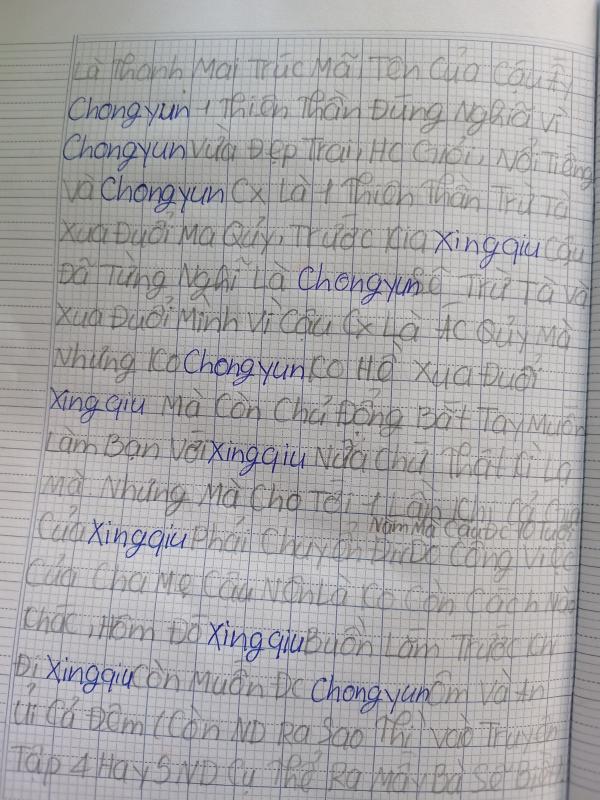 Là Thanh Mai Trúc Mã, Tên Của Cậu Ấy
Chongyun, 1 Thiên Thần Đúng Nghĩa Vì
Chongyun Vừa Đẹp Trai, HC Giỏi, Nổi Tiếng
Và Chongyun Cx Là 1 Thiên Thần Trừ Tà
Xua Đuổi Ma Qủy, Trước Kia Xingqiu Cậu
Đã Từng Nghĩ Là Chongyun Sẽ Trừ Tà Và
Xua Đuổi Mình Vì Cậu Cx Là Ác Qủy Mà
Nhưng Ko Chongyun Ko Hề Xua Đuổi
Xingqiu Mà Còn Chủ Động Bắt Tay Muốn
Làm Bạn Với Xingqiu Nữa Chứ Thật Kì Lạ
Mà Nhưng Mà Cho Tới 1 Lần Khi Cả
Năm Mà Cậu Đc 10 Tuổi
Của Xingqiu Phải Chuyển Đi Do Công Việc
Của Cha Mẹ Cậu Nên Là Ko Còn Cách Nào
Khác, Hôm Đó Xingqiu Buồn Lắm Trước Khi
Đi Xingqiu Còn Muốn Đc Chongyun Ôm Và An
Ủi Cả Đêm (Còn ND Ra Sao Thì Vào Truyện
Tập 4 Hay 5 ND Cụ Thể Ra Mấy Bà Sẽ Biết